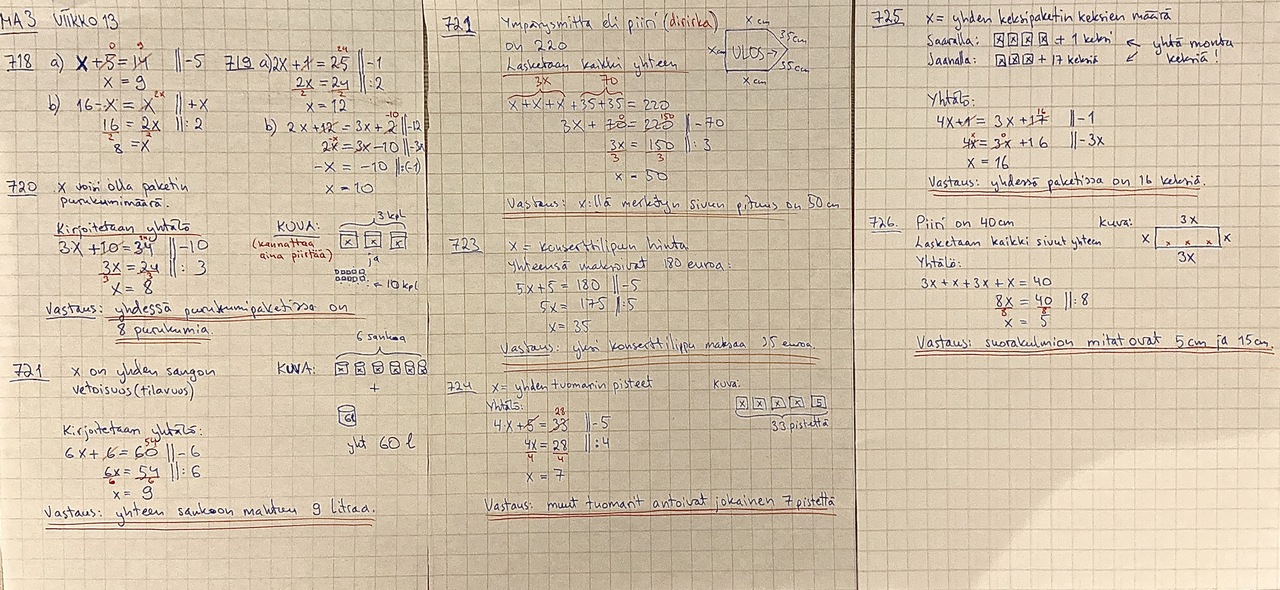 MA3 VIIKKO 13
718 a) x + 5 = 14 ‖ -5
x = 9
b) 16 - x = x ‖ + x
16 = 2x ‖ : 2
8 = x
719 a) 2x + 1 = 25 ‖ -1
2x = 24 ‖ : 2
x = 12
b) 2x + 12 = 3x + 2 ‖ -12
2x = 3x - 10 ‖ -3x
-x = -10 ‖ :(-1)
x = 10
720 x voisi olla paketin
purukumimäärä.
Kirjoitetaan yhtälö
3x + 10 = 34 ‖ -10
3x = 24 ‖ : 3
x = 8
KUVA:
(kannattaa
aina piirtää)
3 kpl
x x x
ja
← 10 kpl
Vastaus: yhdessä purukumipaketissa on
8 purukumia.
721 x on yhden sangon
vetoisuus (tilavuus)
KUVA:
6 sankoa
x x x x x x
+
6l
yht 60 l
Kirjoitetaan yhtälö:
6x + 6 = 60 ‖ - 6
6x = 54 ‖ : 6
x = 9
Vastaus: yhteen sankoon mahtuu 9 litraa.
721 Ympärysmitta eli piiri (dirirka)
on 220
Lasketaan kaikki yhteen
x cm
35cm
x ULOS →
35cm
x cm
3x 70
x + x + x + 35 + 35 = 220
3x + 70 = 220 ‖ -70
3x = 150 ‖ : 3
x = 50
Vastaus: x:llä merkityn sivun pituus on 50 cm
723 x = konserttilipun hinta
Yhteensä maksoivat 180 euroa:
5x + 5 = 180 ‖ -5
5x = 175 ‖ : 5
x = 35
Vastaus: yksi konserttilippu maksaa 35 euroa.
724 x = yhden tuomarin pisteet
Yhtälö:
4x + 5 = 33 ‖ -5
4x = 28 ‖ : 4
x = 7
KUVA:
x x x x 5
33 pistettä
Vastaus: muut tuomarit antoivat jokainen 7 pistettä
725 x = yhden keksipaketin keksien määrä
Saaralla: x x x x + 1 keksi
Saanalla: x x x + 17 keksiä
yhtä monta
keksiä!
Yhtälö:
4x + 1 = 3x + 17 ‖ -1
4x = 3x + 16 ‖ -3x
x = 16
Vastaus: yhdessä paketissa on 16 keksiä.
726. Piiri on 40cm
Lasketaan kaikki sivut yhteen
Kuva:
3x
x x
3x
Yhtälö:
3x + x + 3x + x = 40
8x = 40 ‖ : 8
x = 5
Vastaus: suorakulmion mitat ovat 5 cm ja 15 cm.